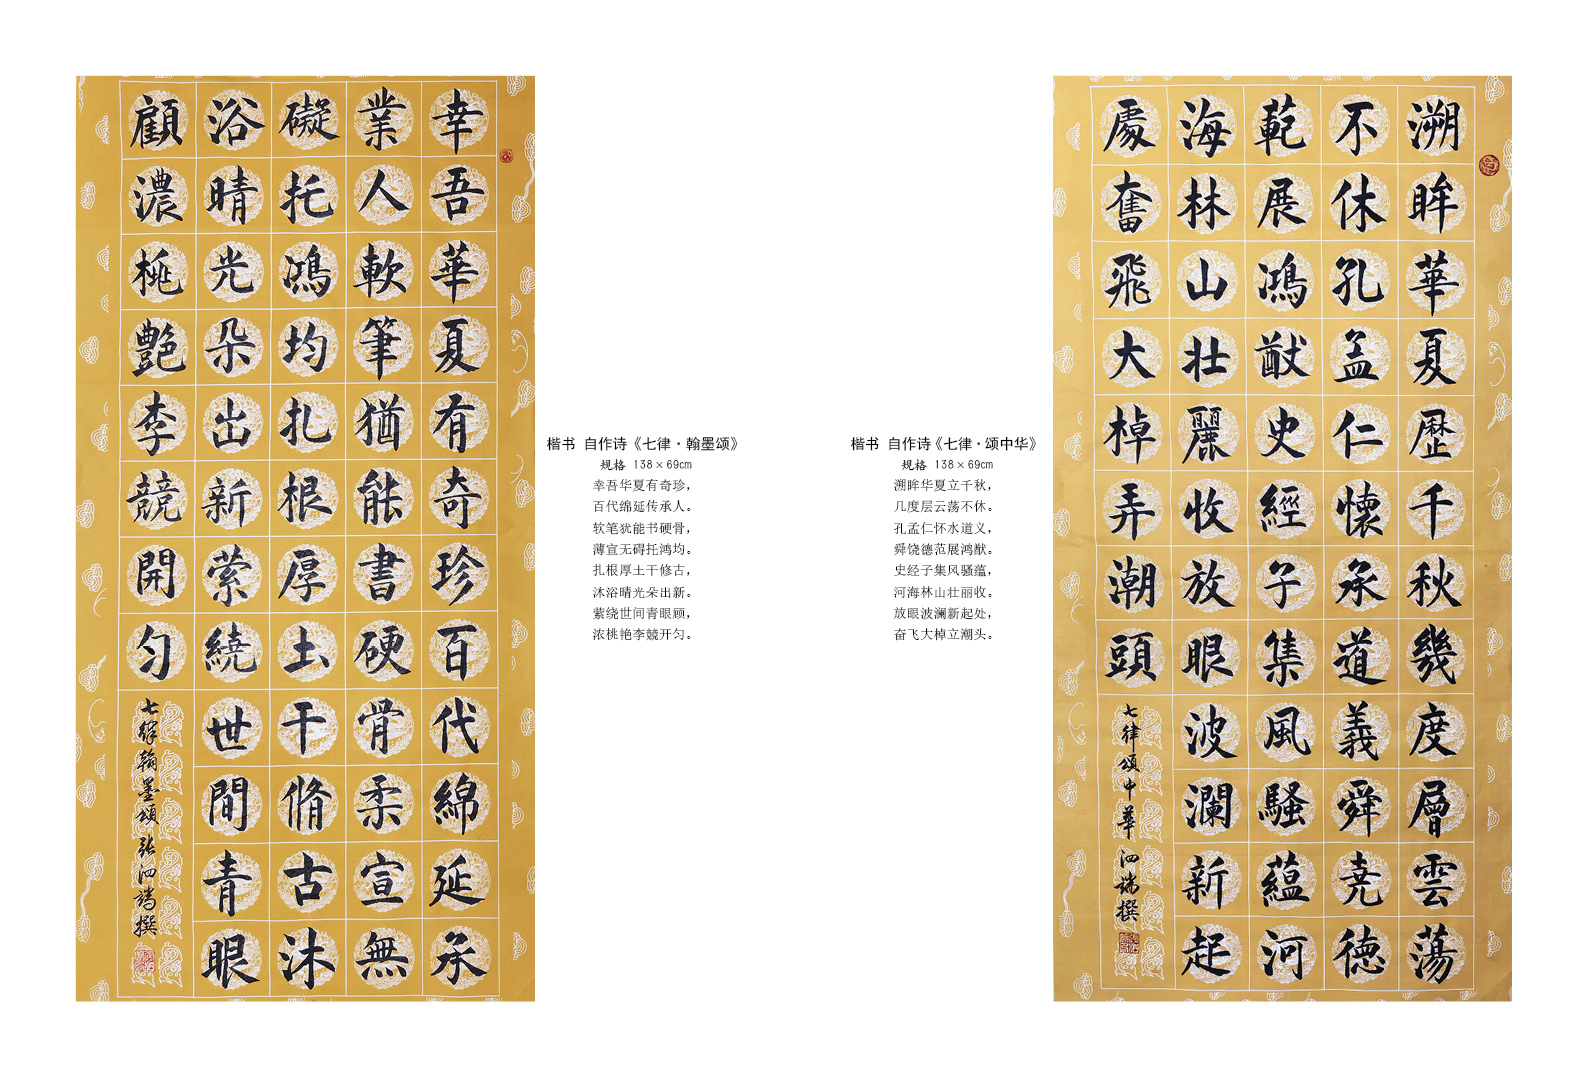 幸吾華夏有奇珍百代綿延承
業人軟筆猶能書硬骨柔宣無
礙托鴻均扎根厚土干脩古沐
浴晴光朵出新萦繞世間青眼
顧濃桃艷李競開勻
七律翰墨頌張泗瑞撰
楷书 自作诗《七律·翰墨颂》
规格 138×69cm
幸吾华夏有奇珍，
百代绵延传承人。
软笔犹能书硬骨，
薄宣无碍托鸿均。
扎根厚土干修古，
沐浴晴光朵出新。
萦绕世间青眼顾，
浓桃艳李競开匀。
楷书 自作诗《七律·颂中华》
规格 138×69cm
溯眸华夏立千秋，
几度层云荡不休。
孔孟仁怀水道义，
舜饶德范展鸿猷。
史经子集风骚蕴，
河海林山壮丽收。
放眼波澜新起处，
奋飞大棹立潮头。
溯眸華夏歷千秋幾度層雲蕩
不休孔孟仁懷承道義舜尭德
範展鴻猷史經子集風騷蘊河
海林山壯麗收放眼波瀾新起
處奮飛大棹弄潮頭
七律頌中華 泗瑞撰